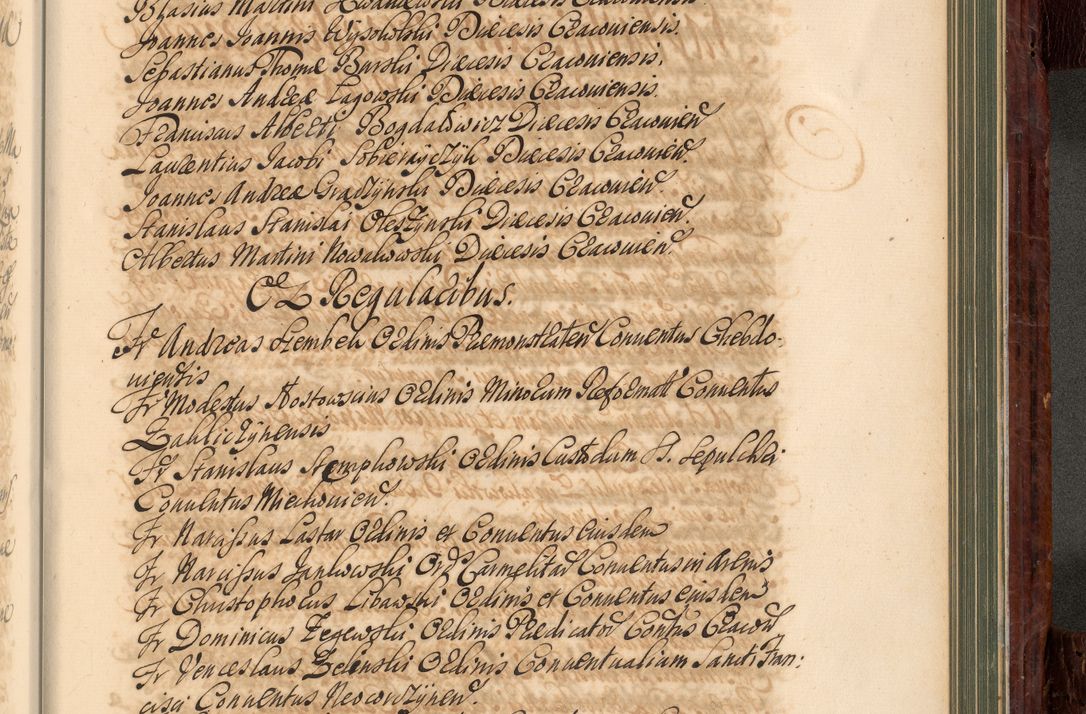 Blasius Martini Diæcesis Cracoviensis
Joannes Joannis Wysowlski Diæcesis Cracoviensis.
Sebastianus Thomæ Burski Diæcesis Cracoviensis.
Joannes Andreæ Lagowski Diæcesis Cracoviensis
Franciscus Alberti Bogdalowicz Diæcesis Cracovien
Laurentius Jacobi Sobierayczyk Diæcesis Cracovien.
Joannes Andreæ Gradzynski Diæcesis Cracovien
Stanislaus Stanislai Oleszynski Diæcesis Cracovien.
Albertus Martini Nowakowski Diæcesis Cracovien.
Ex Regularibus.
Fr Andreas Hembek Ordinis Præmonstraten Conventus Chebdo-
viensis
Fr Modestus Ordinis Minorum Reformat Conventus
Zakliczynensis
Fr Stanislaus Stempkowski Ordinis Custodum S. Sepulchri
Conventus Miechovien.
Fr Narcissus Lastar Ordinis et Conventus eiusdem
Fr Narcissus Jankowski Ord Carmelitar Conventus in Arenis
Fr Christophorus Libawski Ordinis et Conventus eiusdem
Fr Dominicus Ordinis Prædicator Contus Cracov
Fr Venceslaus Zelenski Ordinis Conventualium Sancti Fran:
cisci Conventus Neocorczynen.